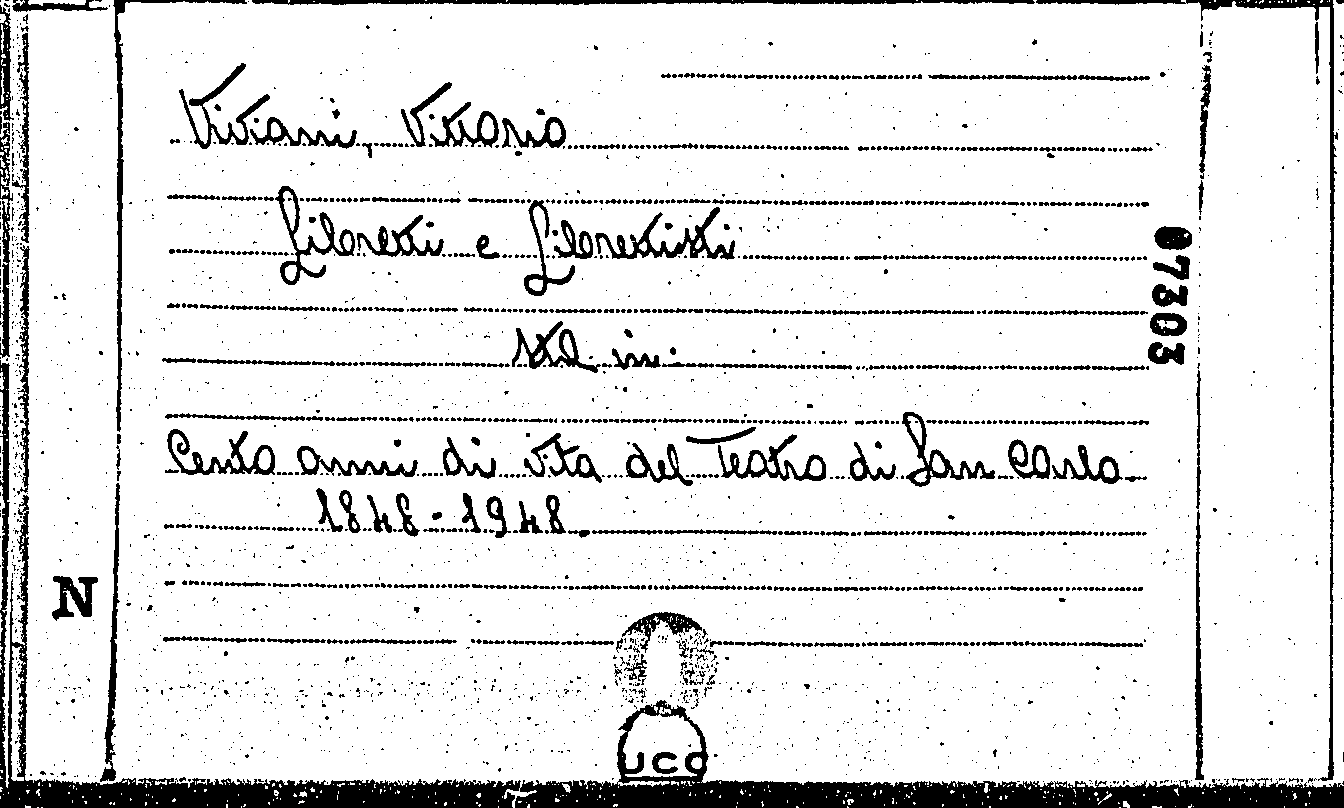 Viviani, Vittorio
Libretti e Librettisti
sta in:
Cento anni di vita del Teatro di San Carlo.
1848-1948.
07303
N
UCC